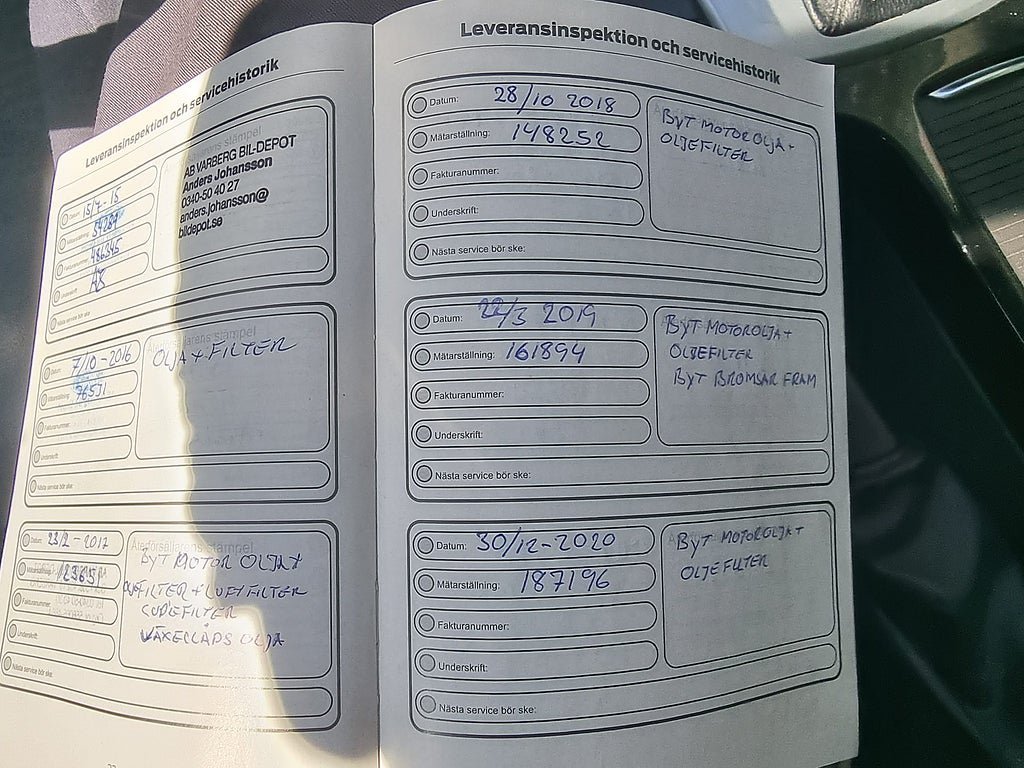 Leveransinspektion och servicehistorik
Datum: 15/7-15
Mätarställning:
Fakturanummer: 486345
Underskrift:
Nästa service bör ske:
AB VARBERG BIL-DEPOT
Anders Johansson
0340-50 40 27
anders.johansson@
bildepot.se
Datum: 7/10-2016
Mätarställning: 76531
Fakturanummer:
Underskrift:
Nästa service bör ske:
Återförsäljarens stämpel
OLJA + FILTER
Datum: 23/2-2017
Mätarställning:
Fakturanummer:
Underskrift:
Nästa service bör ske:
Återförsäljarens stämpel
BYT MOTOR OLJA +
OLJEFILTER + LUFTFILTER
CUPEFILTER
VÄXELLÅDS OLJA
Leveransinspektion och servicehistorik
Datum: 28/10 2018
Mätarställning: 148252
Fakturanummer:
Underskrift:
Nästa service bör ske:
BYT MOTOROLJA +
OLJEFILTER
Datum: 22/3 2019
Mätarställning: 161894
Fakturanummer:
Underskrift:
Nästa service bör ske:
BYT MOTOROLJA +
OLJEFILTER
BYT BROMSAR FRAM
Datum: 30/12-2020
Mätarställning: 187196
Fakturanummer:
Underskrift:
Nästa service bör ske:
BYT MOTOROLJA +
OLJEFILTER